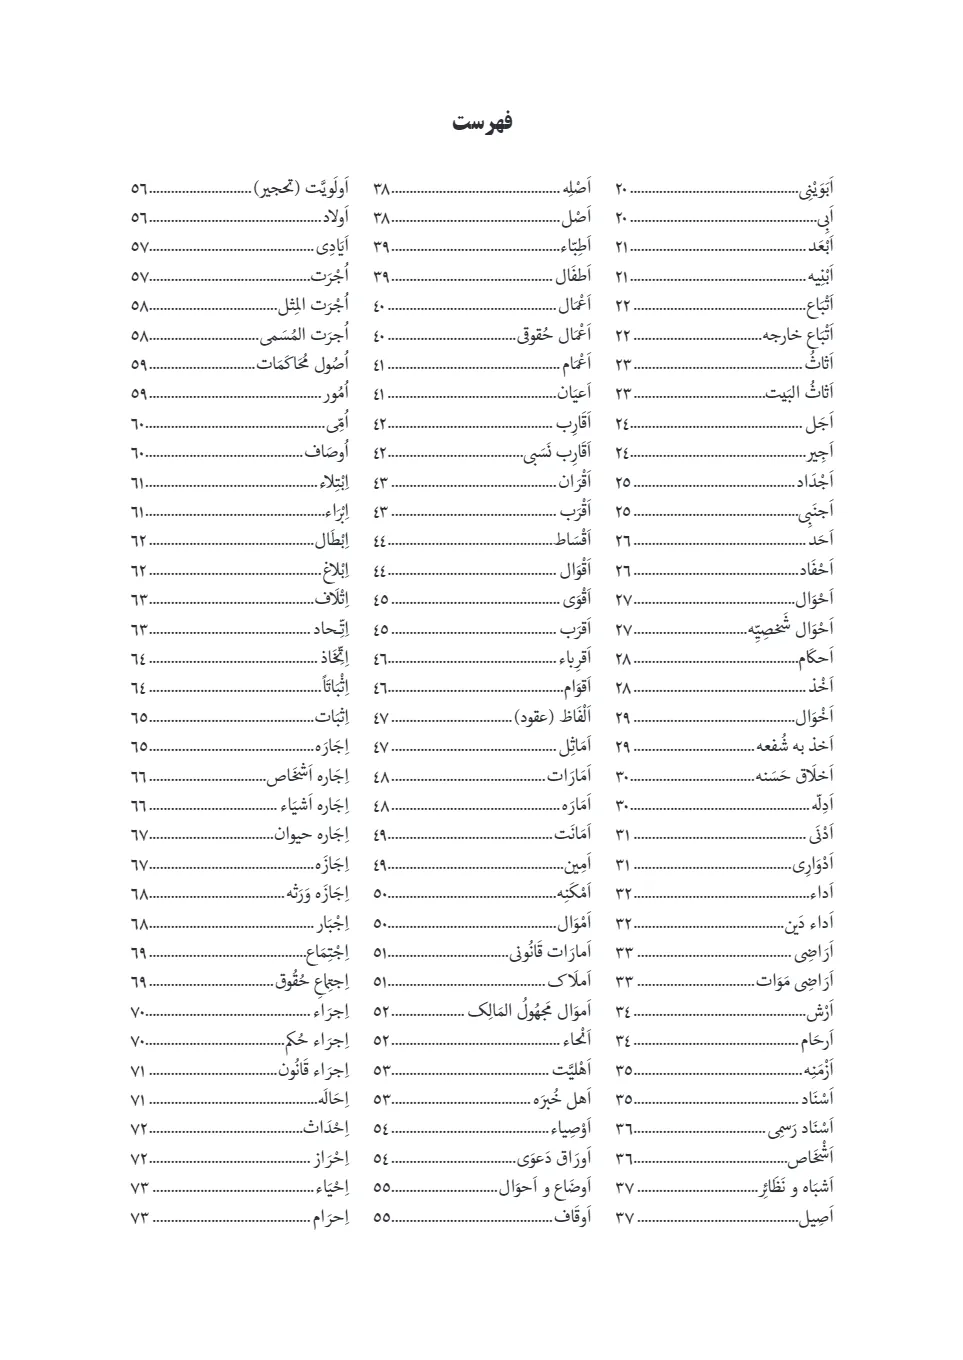 فهرست
اَبَوَیْنِی ............ ۲۰
اَبِی ............ ۲۰
اَبْعَد ............ ۲۱
اَبْنِیه ............ ۲۱
اَتْبَاع ............ ۲۲
اَتْبَاع خارجه ............ ۲۲
اَثاثُ ............ ۲۳
اَثاثُ البَیت ............ ۲۳
اَجَل ............ ۲٤
اَجِیر ............ ۲٤
اَجْدَاد ............ ۲٥
اَجنَبِی ............ ۲٥
اَحَد ............ ۲٦
اَحْفَاد ............ ۲٦
اَحْوَال ............ ۲۷
اَحْوَال شَخصِیِّه ............ ۲۷
اَحکَام ............ ۲۸
اَخْذ ............ ۲۸
اَخْوَال ............ ۲۹
اَخذ به شُفعه ............ ۲۹
اَخلَاق حَسَنه ............ ۳۰
اَدِلّه ............ ۳۰
اَدْنَی ............ ۳۱
اَدْوَارِی ............ ۳۱
اَداء ............ ۳۲
اَداء دَین ............ ۳۲
اَرَاضِی ............ ۳۳
اَرَاضِی مَوَات ............ ۳۳
اَرْش ............ ۳٤
اَرحَام ............ ۳٤
اَزْمَنِه ............ ۳٥
اَسْنَاد ............ ۳٥
اَسْنَاد رَسمِی ............ ۳٦
اَشْخَاص ............ ۳٦
اَشبَاه و نَظَائِر ............ ۳۷
اَصِیل ............ ۳۷
اَصْلِه ............ ۳۸
اَصْل ............ ۳۸
اَطِبّاء ............ ۳۹
اَطفَال ............ ۳۹
اَعْمَال ............ ٤۰
اَعْمَال حُقوقی ............ ٤۰
اَعْمَام ............ ٤۱
اَعیَان ............ ٤۱
اَقَارِب ............ ٤۲
اَقَارِب نَسَبی ............ ٤۲
اَقْرَان ............ ٤۳
اَقْرَب ............ ٤۳
اَقْسَاط ............ ٤٤
اَقْوَال ............ ٤٤
اَقْوَی ............ ٤٥
اَقرَب ............ ٤٥
اَقرِباء ............ ٤٦
اَقوَام ............ ٤٦
اَلْفَاظ (عقود) ............ ٤۷
اَمَاثِل ............ ٤۷
اَمَارَات ............ ٤۸
اَمَارَه ............ ٤۸
اَمَانَت ............ ٤۹
اَمِین ............ ٤۹
اَمْکَنِه ............ ٥۰
اَمْوَال ............ ٥۰
اَمارَات قَانُونی ............ ٥۱
اَملَاک ............ ٥۱
اَموَال مَجهُولُ المَالِک ............ ٥۲
اَنْحاء ............ ٥۲
اَهْلیَّت ............ ٥۳
اَهل خُبرَه ............ ٥۳
اَوْصِیاء ............ ٥٤
اَورَاق دَعوَی ............ ٥٤
اَوضَاع و اَحوَال ............ ٥٥
اَوقَاف ............ ٥٥
اَولَویَّت (تحجیر) ............ ٥٦
اَولاد ............ ٥٦
اَیَادِی ............ ٥۷
اُجْرَت ............ ٥۷
اُجْرَت المِثل ............ ٥۸
اُجرَت المُسَمی ............ ٥۸
اُصُول مُحَاکَمَات ............ ٥۹
اُمُور ............ ٥۹
اُمِّی ............ ٦۰
اُوصَاف ............ ٦۰
اِبْتِلاء ............ ٦۱
اِبْرَاء ............ ٦۱
اِبْطَال ............ ٦۲
اِبْلاغ ............ ٦۲
اِتْلَاف ............ ٦۳
اِتِّحاد ............ ٦۳
اِتِّخَاذ ............ ٦٤
اِثْبَاتَاً ............ ٦٤
اِثبَات ............ ٦٥
اِجَارَه ............ ٦٥
اِجَاره اَشْخَاص ............ ٦٦
اِجَاره اَشیَاء ............ ٦٦
اِجَاره حیوان ............ ٦۷
اِجَازَه ............ ٦۷
اِجَازَه وَرَثه ............ ٦۸
اِجْبَار ............ ٦۸
اِجْتِمَاع ............ ٦۹
اِجتِماعِ حُقُوق ............ ٦۹
اِجرَاء ............ ۷۰
اِجرَاء حُکم ............ ۷۰
اِجرَاء قَانُون ............ ۷۱
اِحَالَه ............ ۷۱
اِحْدَاث ............ ۷۲
اِحْرَاز ............ ۷۲
اِحْیَاء ............ ۷۳
اِحرَام ............ ۷۳